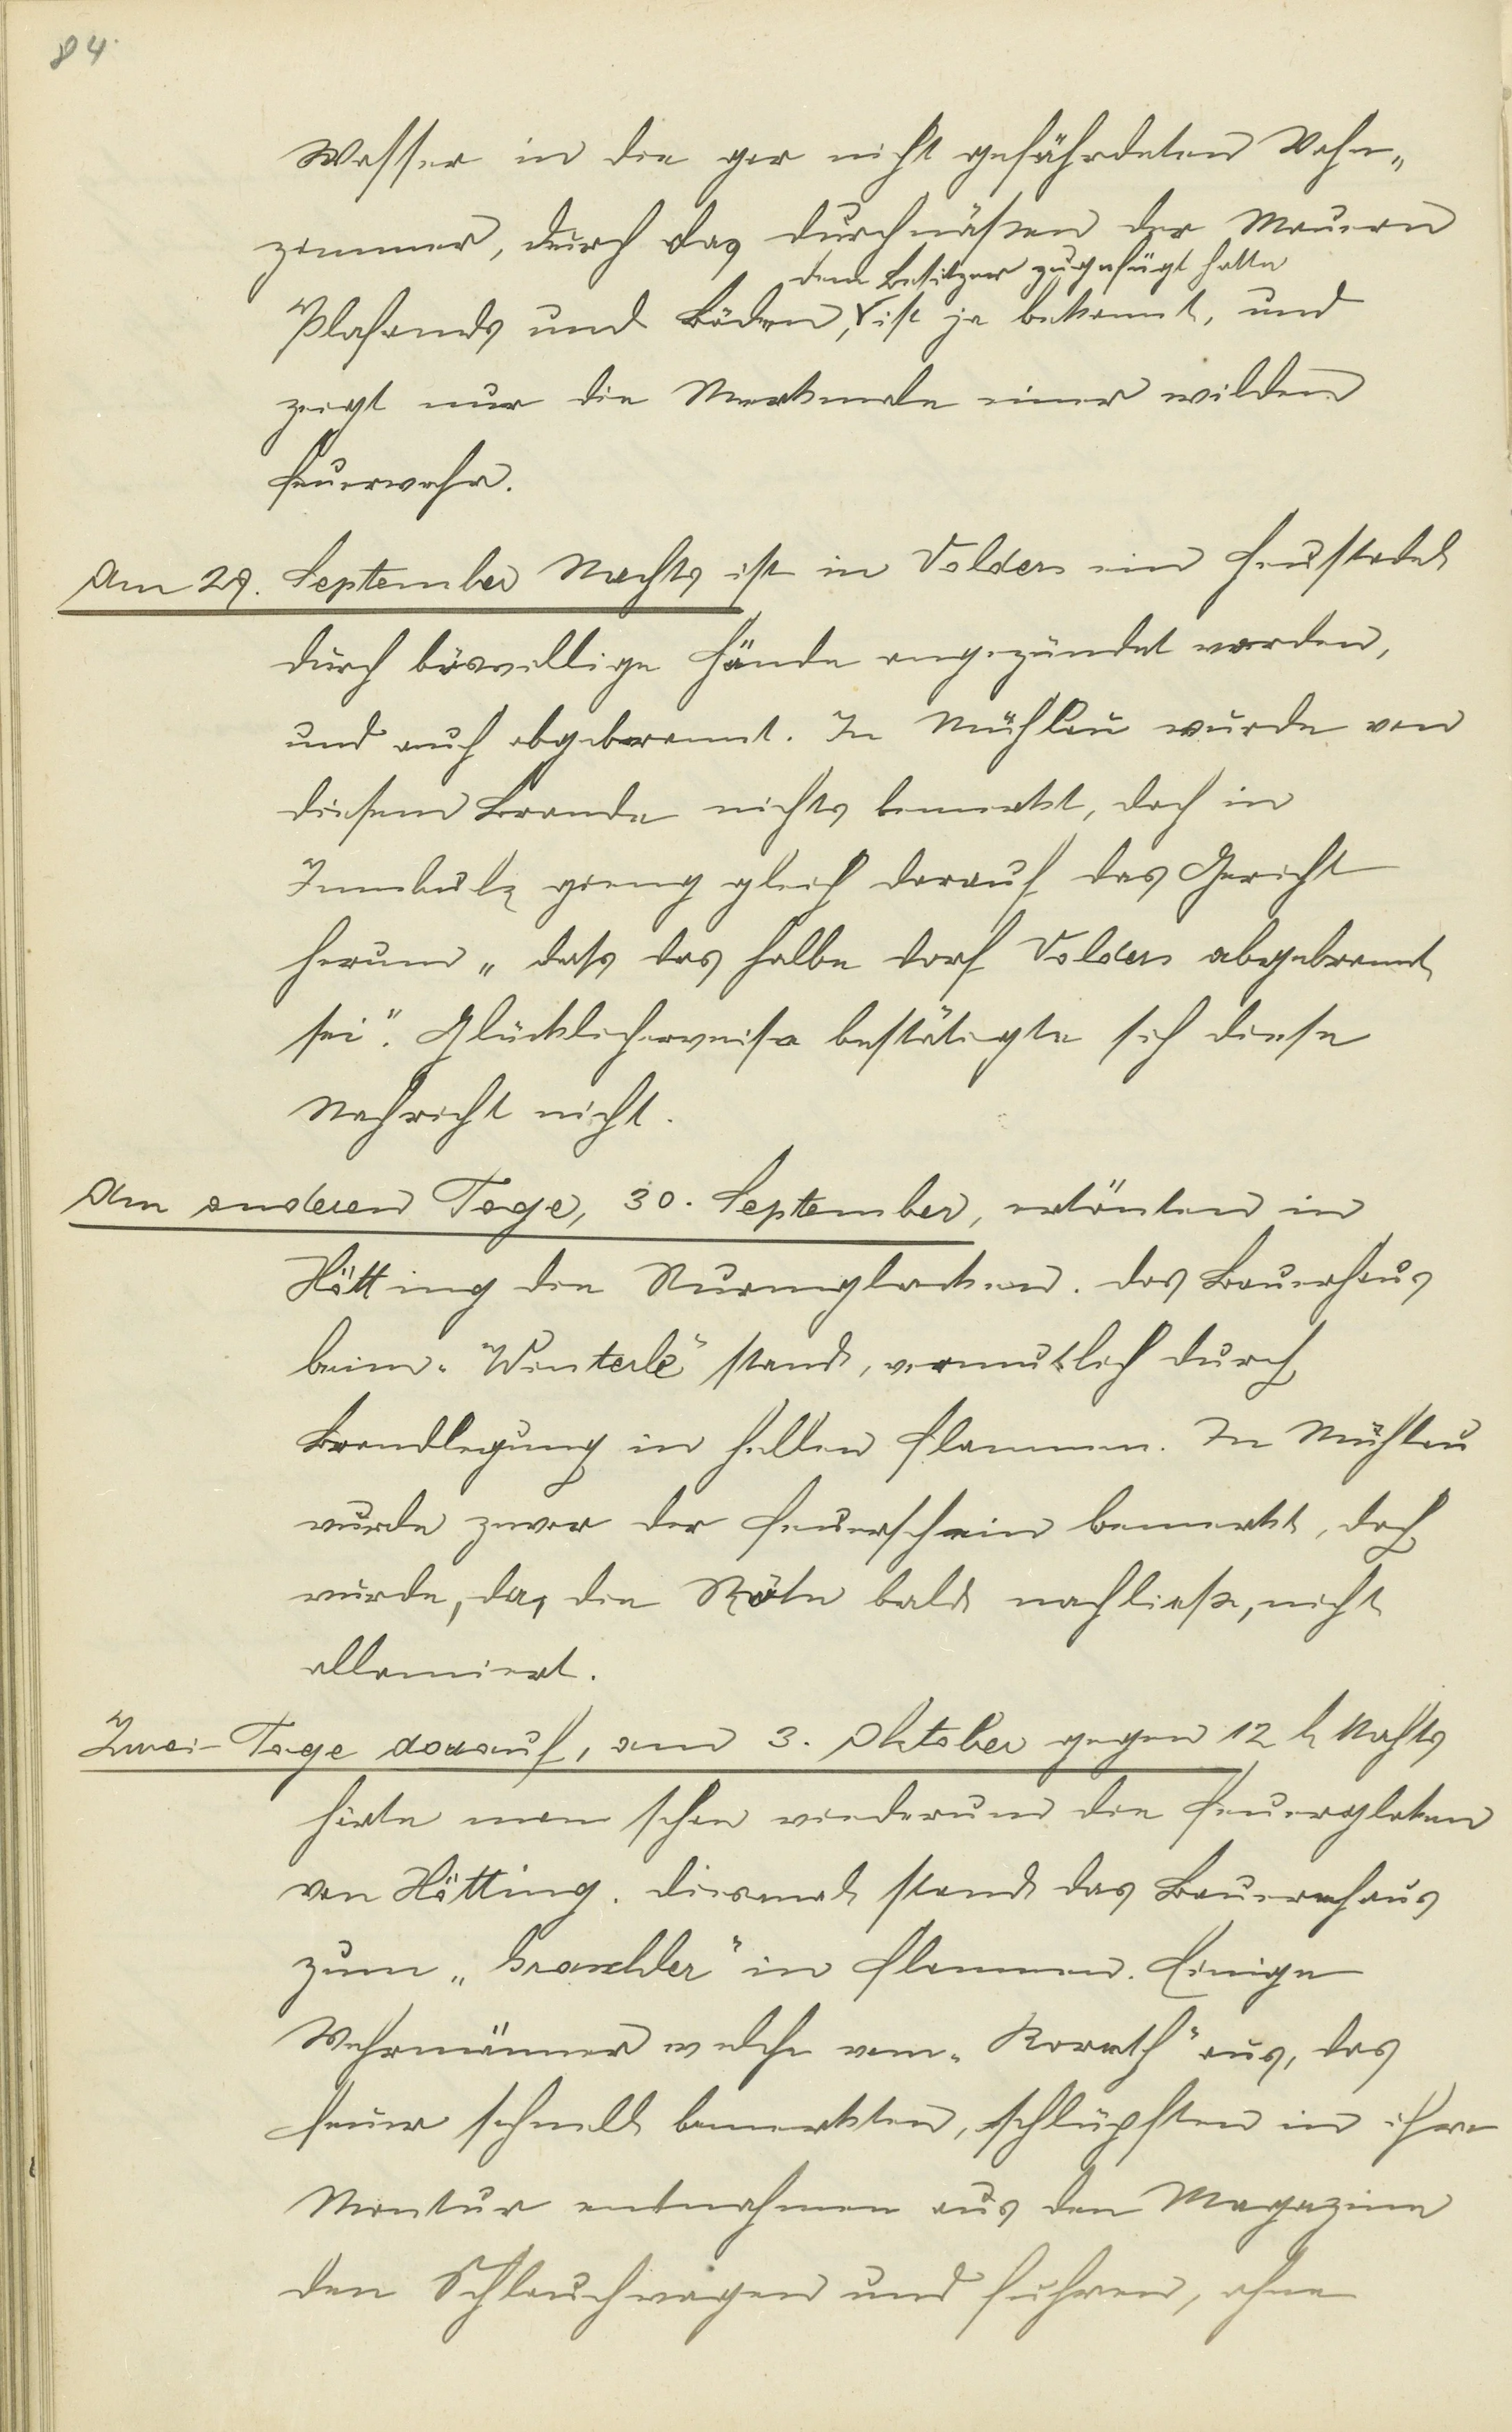 84.
Wasser in die gar nicht gefährdeten Wohn„
zimmer, durch das durchnäßen der Mauern
dem Besitzer zugefügt hatte
Plafonds und Böden, ist ja bekannt, und
zeigt nur die Merkmale einer wilden
Feuerwehr.
Am 29. September Nachts ist in Volders ein Heustadel
durch böswillige Hände angezündet worden,
und auch abgebrannt. In Mühlau wurde von
diesem Brande nichts bemerkt, doch in
gieng gleich darauf das Gericht
herum „dass das halbe Dorf Volders abgebrannt
sei". Glücklicherweise bestätigte sich diese
Nachricht nicht.
Am anderen Tage, 30. September, ertönten in
Hötting die Sturmglocken. Das Bauerhaus
beim „Winterle" stand, vermutlich durch
Brandlegung in hellen Flammen. In Mühlau
wurde zwar der Feuerschein bemerkt, doch
wurde, da die Röte bald nachließ, nicht
allamiert.
Zwei Tage darauf, am 3. Oktober gegen 12 h Nachts
hörte man schon wiederum die Feuergloken
von Hötting. Diesmal stand das Bauernhaus
zum in Flammen. Einige
Wehrmänner welche vom „Koreth" aus, das
Feuer schnell bemerkten, schlüpften in ihre
Montur entnahmen aus den Magazine
den Schlauchwagen und fuhren, ohne